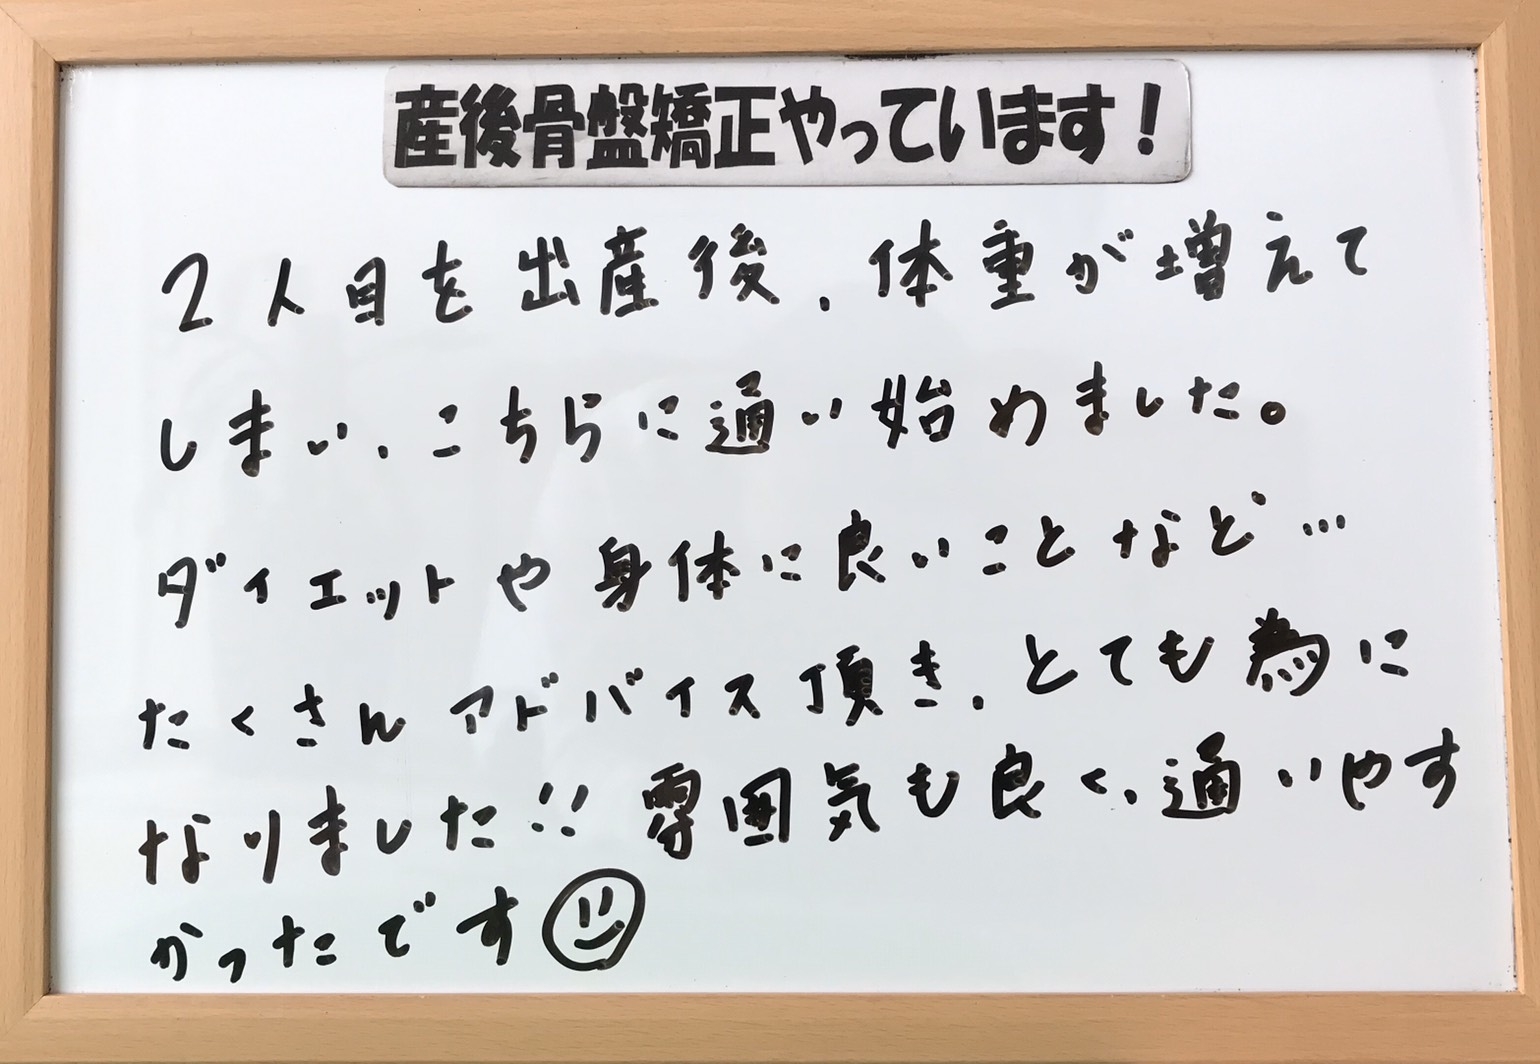 産後骨盤矯正やっています!
2人目を出産後、体重が増えて
しまい、こちらに通い始めました。
ダイエットや身体に良いことなど…
たくさんアドバイス頂き、とても為に
なりました!! 雰囲気も良く、通いやす
かったです